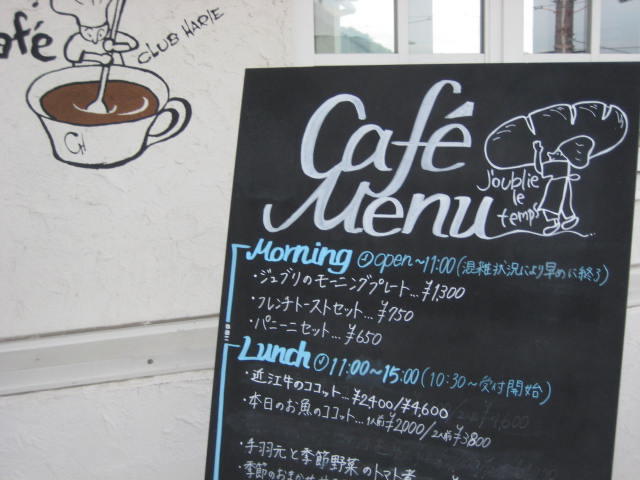 afé
CLUB HARIE
CH
Café
Menu
J'oublie
le
temps
Morning open~11:00(混雑状況により早めに終了)
・ジュブリのモーニングプレート...¥1,300
・フレンチトーストセット...¥750
・パニーニセット...¥650
Lunch 11:00~15:00(10:30~受付開始)
・近江牛のココット...¥2,400/¥4,600
・本日のお魚のココット...1人前¥2,000/2人前¥3,800
・手羽元と季節野菜のトマト煮
・季節のおまかせ